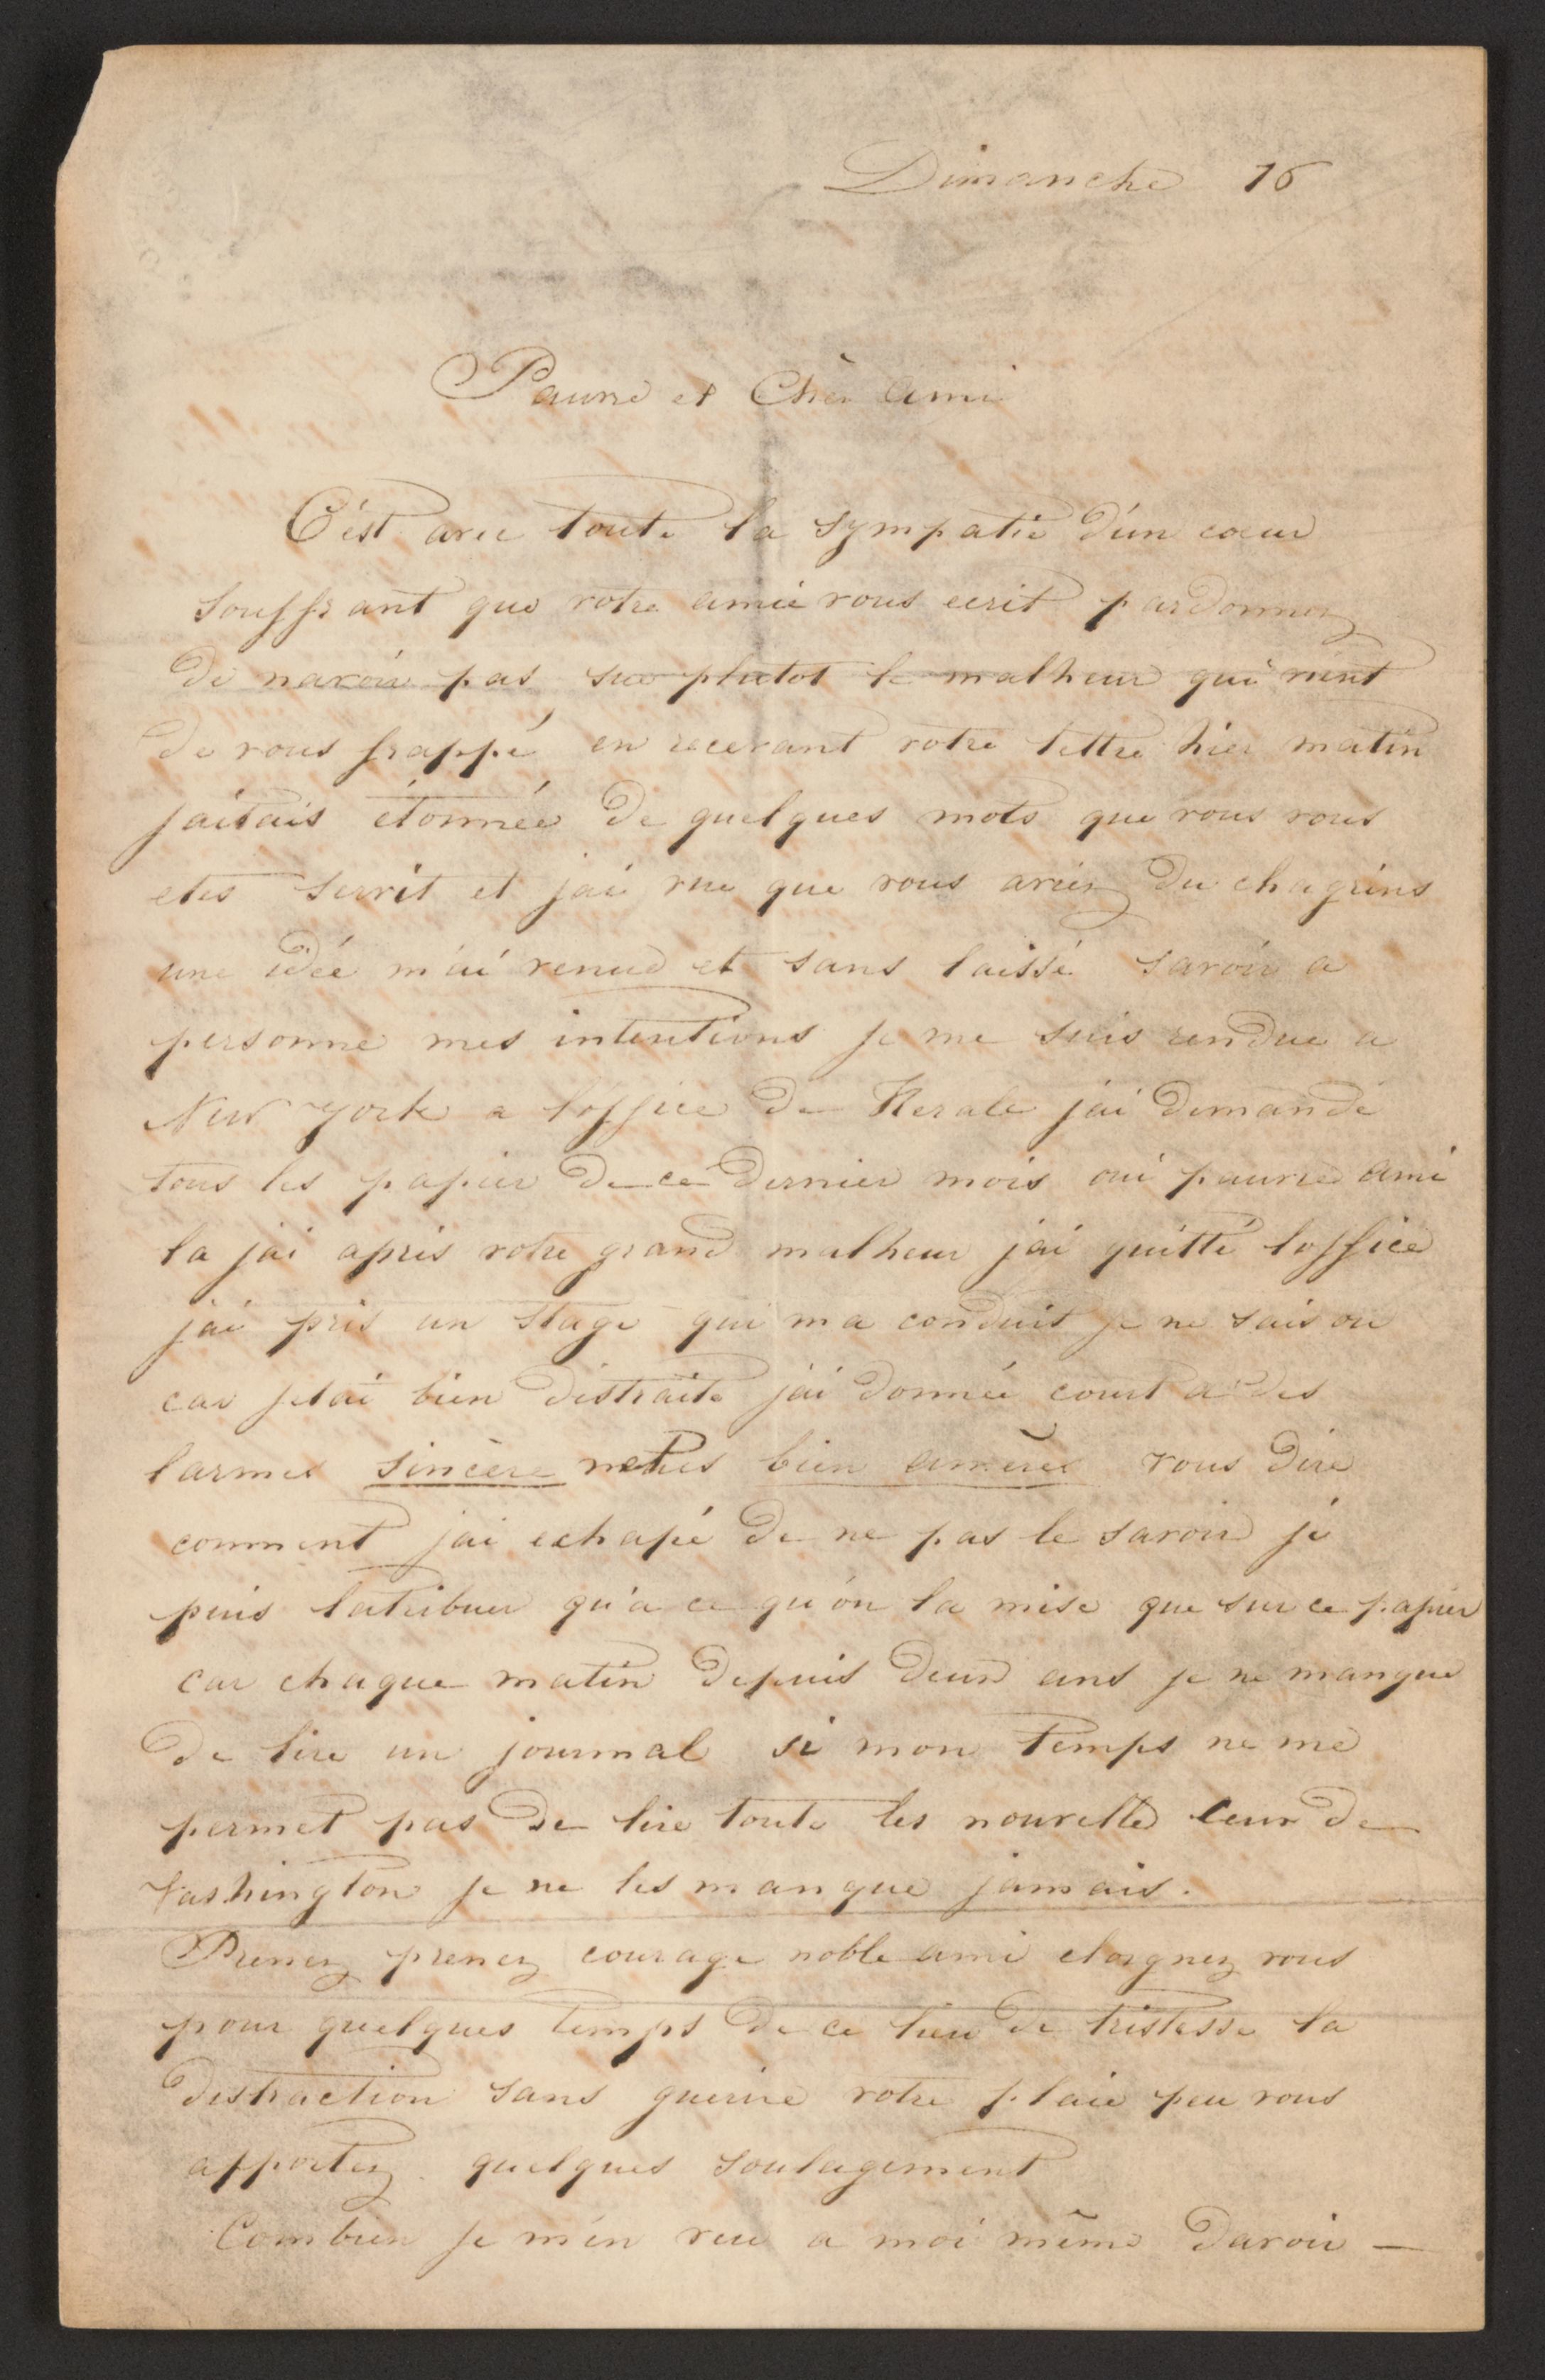 Dimanche 16
Pauvre et Chèr ami
C'est avec toute la sympatie d'un coeur
souffrant que votre amie vous ecrit pardonnez
de navoir pas su plutot le malheur qui vient
de vous frappé en recevant votre lettre hier matin
jaitais étonnée de quelques mots que vous vous
etes servit et jai vue que vous aviez du chagrins
une idée m'ai venue et sans laissé savoir a
personne mes intentions je me suis rendue a
New York a loffice de Herale jai demandé
tous les papier de ce dernier mois oui pauvre ami
la jai apris votre grand malheur jai quitté loffice
jai pris un stage qui ma conduit je ne sais ou
car jetai bien distraite jai donnée court a des
larmes sincère bien amères vous dire
comment jai echapé de ne pas le savoir je
puis latribuer qu'a ce qu'on la mise que sur ce papier
car chaque matin depuis deux ans je ne manque
de lire un journal si mon temps ne me
permet pas de lire toute les nouvelle ceux de
Vashington je ne les manque jamais.
Prenez prenez courage noble ami eloignez vous
pour quelques temps de ce lieu de tristesse la
distraction sans guerire votre plaie peu vous
apportez quelques soulagement
Combien je m'en veu a moi même davoir —